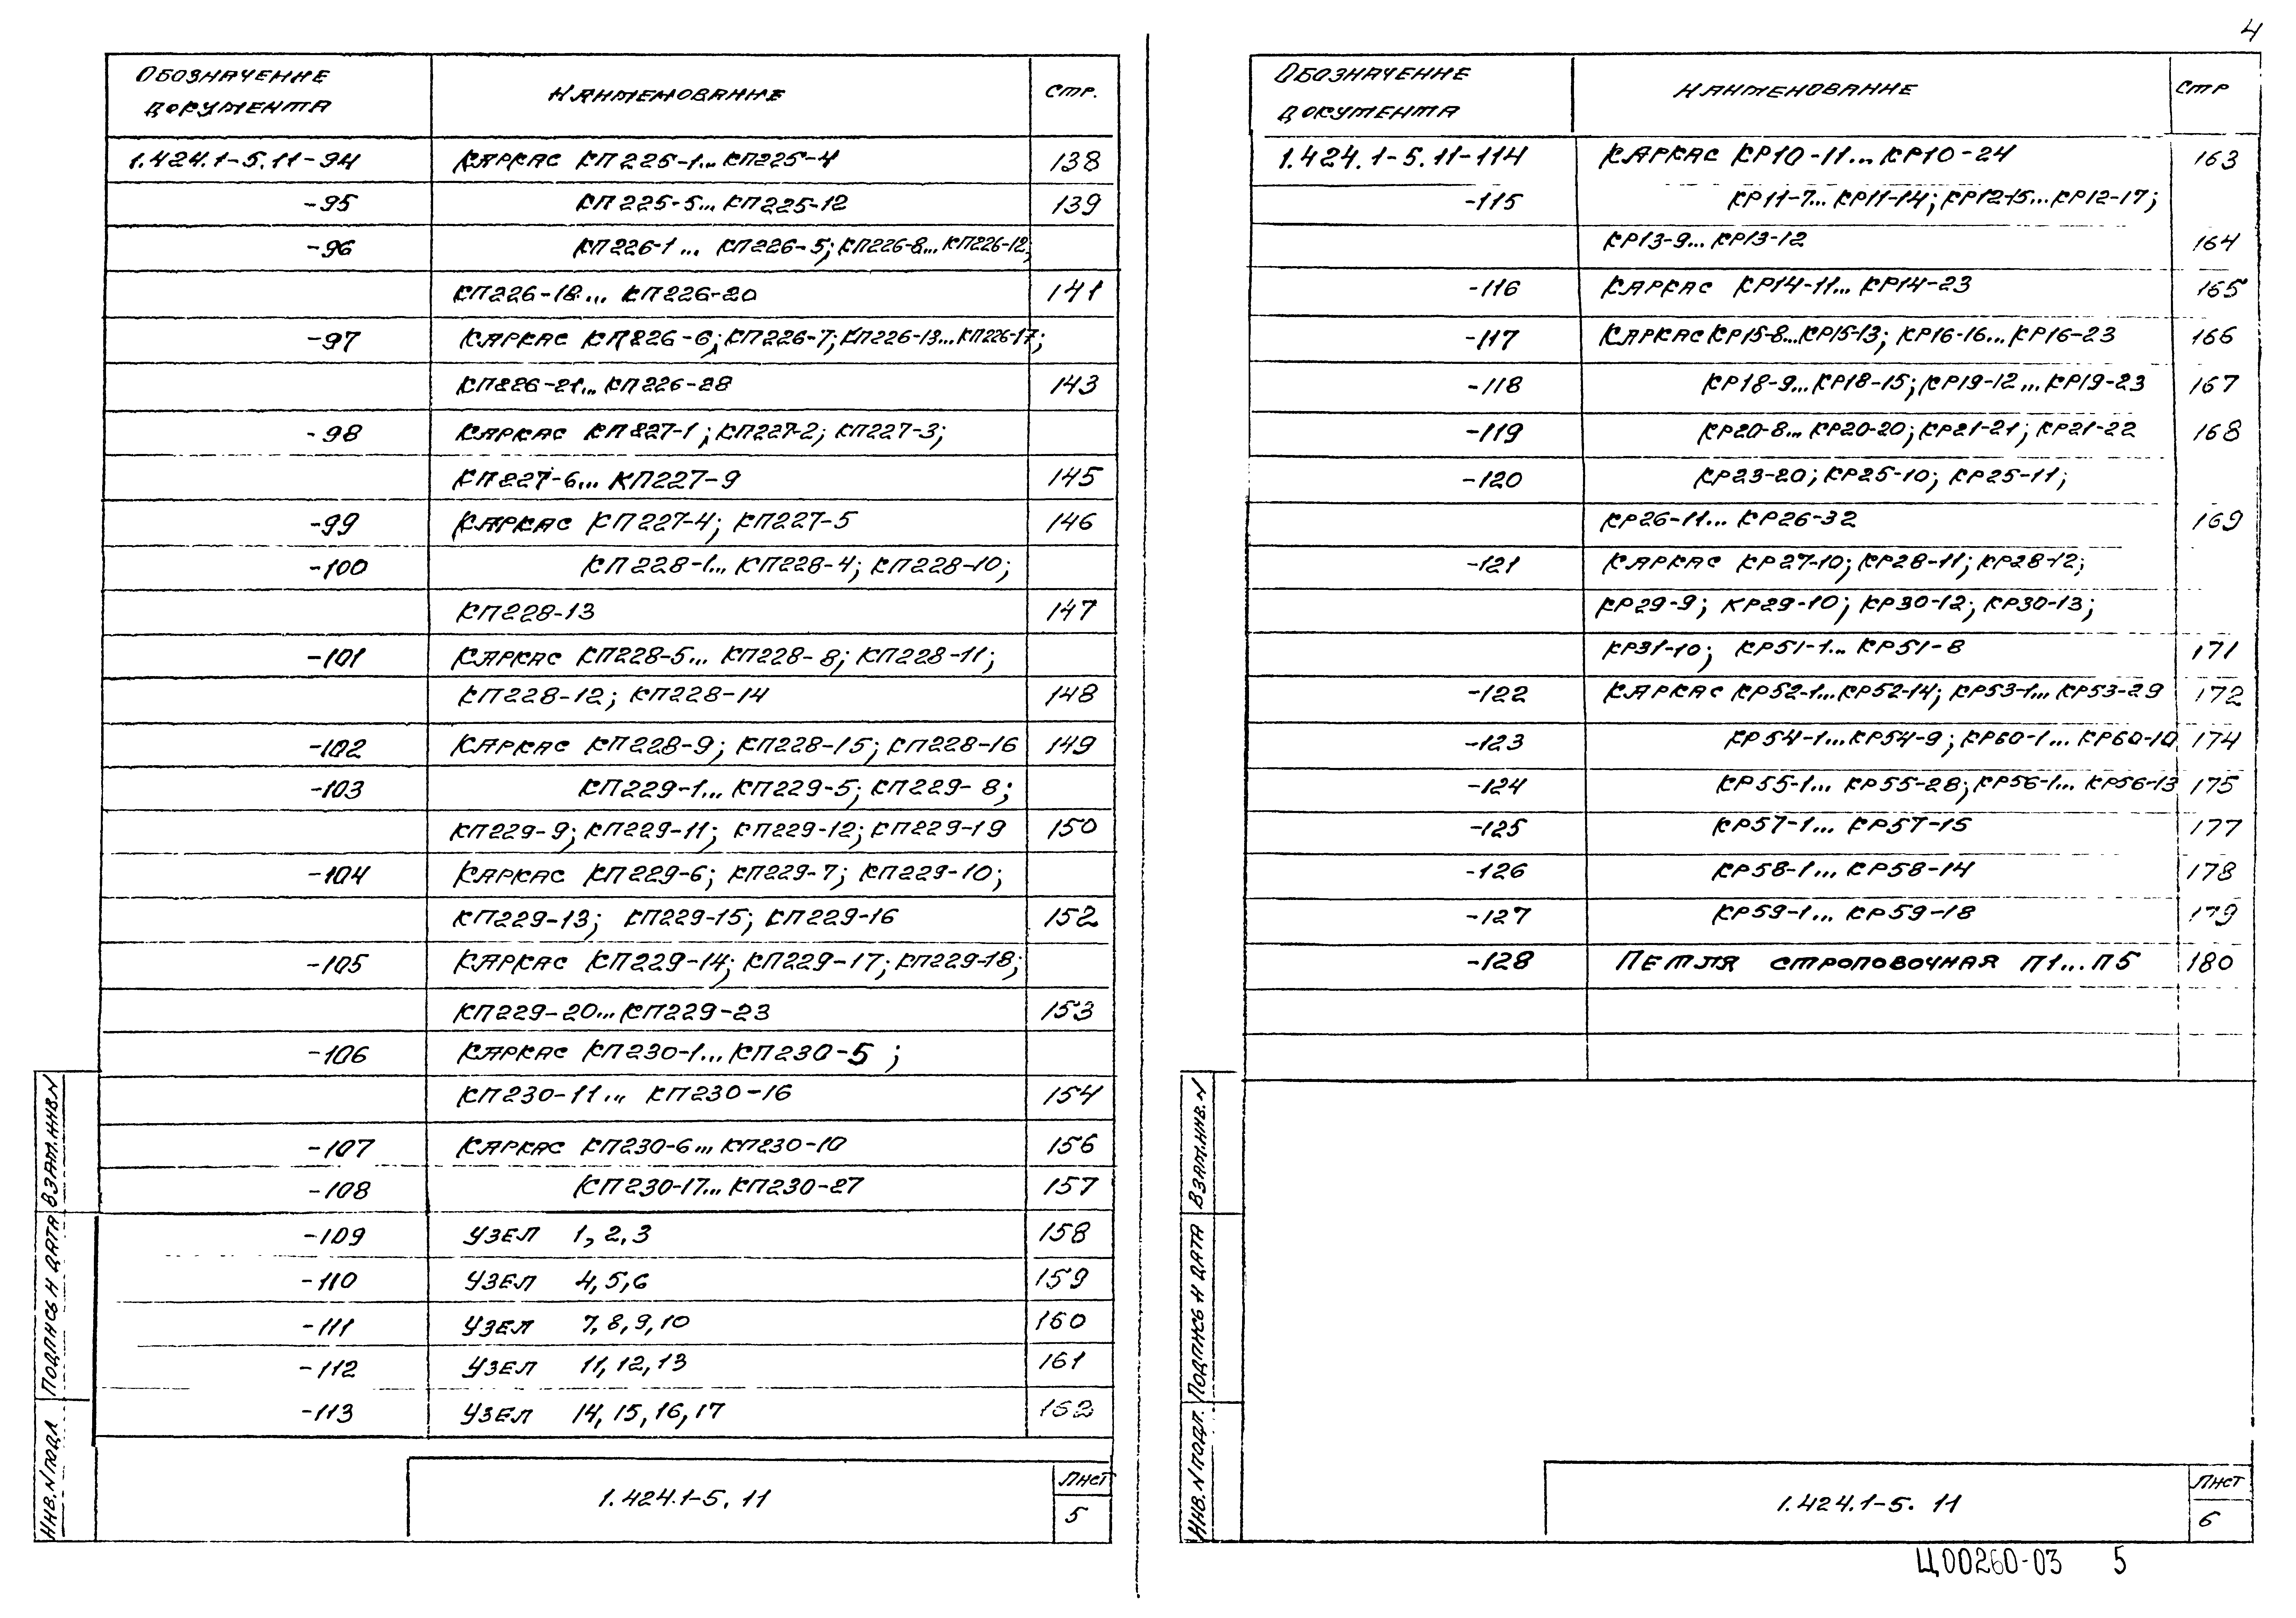 4
Обозначение документа Наименование Стр.
1.424.1-5.11-94 Каркас КП225-1... КП225-4 138
-95 КП225-5... КП225-12 139
-96 КП226-1... КП226-5; КП226-8... КП226-12;
КП226-18... КП226-20 141
-97 Каркас КП226-6; КП226-7; КП226-13... КП226-17;
КП226-21... КП226-28 143
-98 Каркас КП227-1; КП227-2; КП227-3;
КП227-6... КП227-9 145
-99 Каркас КП227-4; КП227-5 146
-100 КП228-1... КП228-4; КП228-10;
КП228-13 147
-101 Каркас КП228-5... КП228-8; КП228-11;
КП228-12; КП228-14 148
-102 Каркас КП228-9; КП228-15; КП228-16 149
-103 КП229-1... КП229-5; КП229-8;
КП229-9; КП229-11; КП229-12; КП229-19 150
-104 Каркас КП229-6; КП229-7; КП229-10;
КП229-13; КП229-15; КП229-16 152
-105 Каркас КП229-14; КП229-17; КП229-18;
КП229-20... КП229-23 153
-106 Каркас КП230-1... КП230-5;
КП230-11... КП230-16 154
-107 Каркас КП230-6... КП230-10 156
-108 КП230-17... КП230-27 157
-109 Узел 1, 2, 3 158
-110 Узел 4, 5, 6 159
-111 Узел 7, 8, 9, 10 160
-112 Узел 11, 12, 13 161
-113 Узел 14, 15, 16, 17 162
Инв. N подл Подпись и дата Взам. инв. N
1.424.1-5. 11
Лист
5
Обозначение документа Наименование Стр
1.424.1-5.11-114 Каркас КР10-11... КР10-24 163
-115 КР11-7... КР11-14; КР12-15... КР12-17;
КР13-9... КР13-12 164
-116 Каркас КР14-11... КР14-23 165
-117 Каркас КР15-8... КР15-13; КР16-16... КР16-23 166
-118 КР18-9... КР18-15; КР19-12... КР19-23 167
-119 КР20-8... КР20-20; КР21-21; КР21-22 168
-120 КР23-20; КР25-10; КР25-11;
КР26-11... КР26-32 169
-121 Каркас КР27-10; КР28-11; КР28-12;
КР29-9; КР29-10; КР30-12; КР30-13;
КР31-10; КР51-1... КР51-8 171
-122 Каркас КР52-1... КР52-14; КР53-1... КР53-29 172
-123 КР54-1... КР54-9; КР60-1... КР60-10 174
-124 КР55-1... КР55-28; КР56-1... КР56-13 175
-125 КР57-1... КР57-15 177
-126 КР58-1... КР58-14 178
-127 КР59-1... КР59-18 179
-128 Петля строповочная П1... П5 180
Инв. N подл. Подпись и дата Взам. инв. N
1.424.1-5. 11
Лист
6
Ц00260-03 5